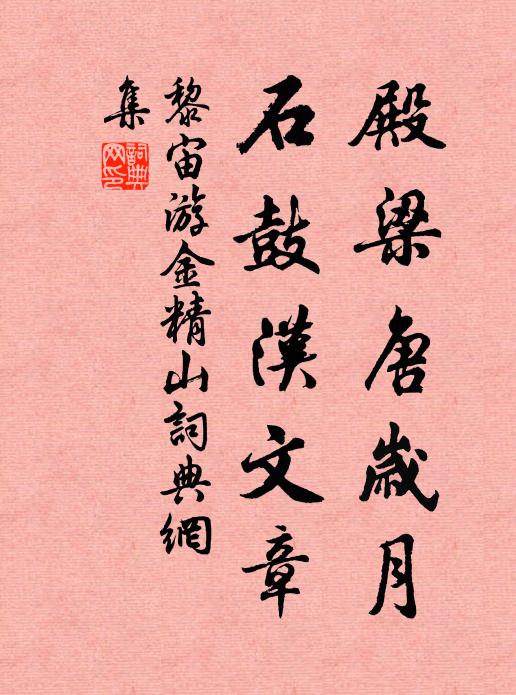 殿梁唐歲月
石鼓漢文章
黎宙游金精山詞典網
集
詞典網印